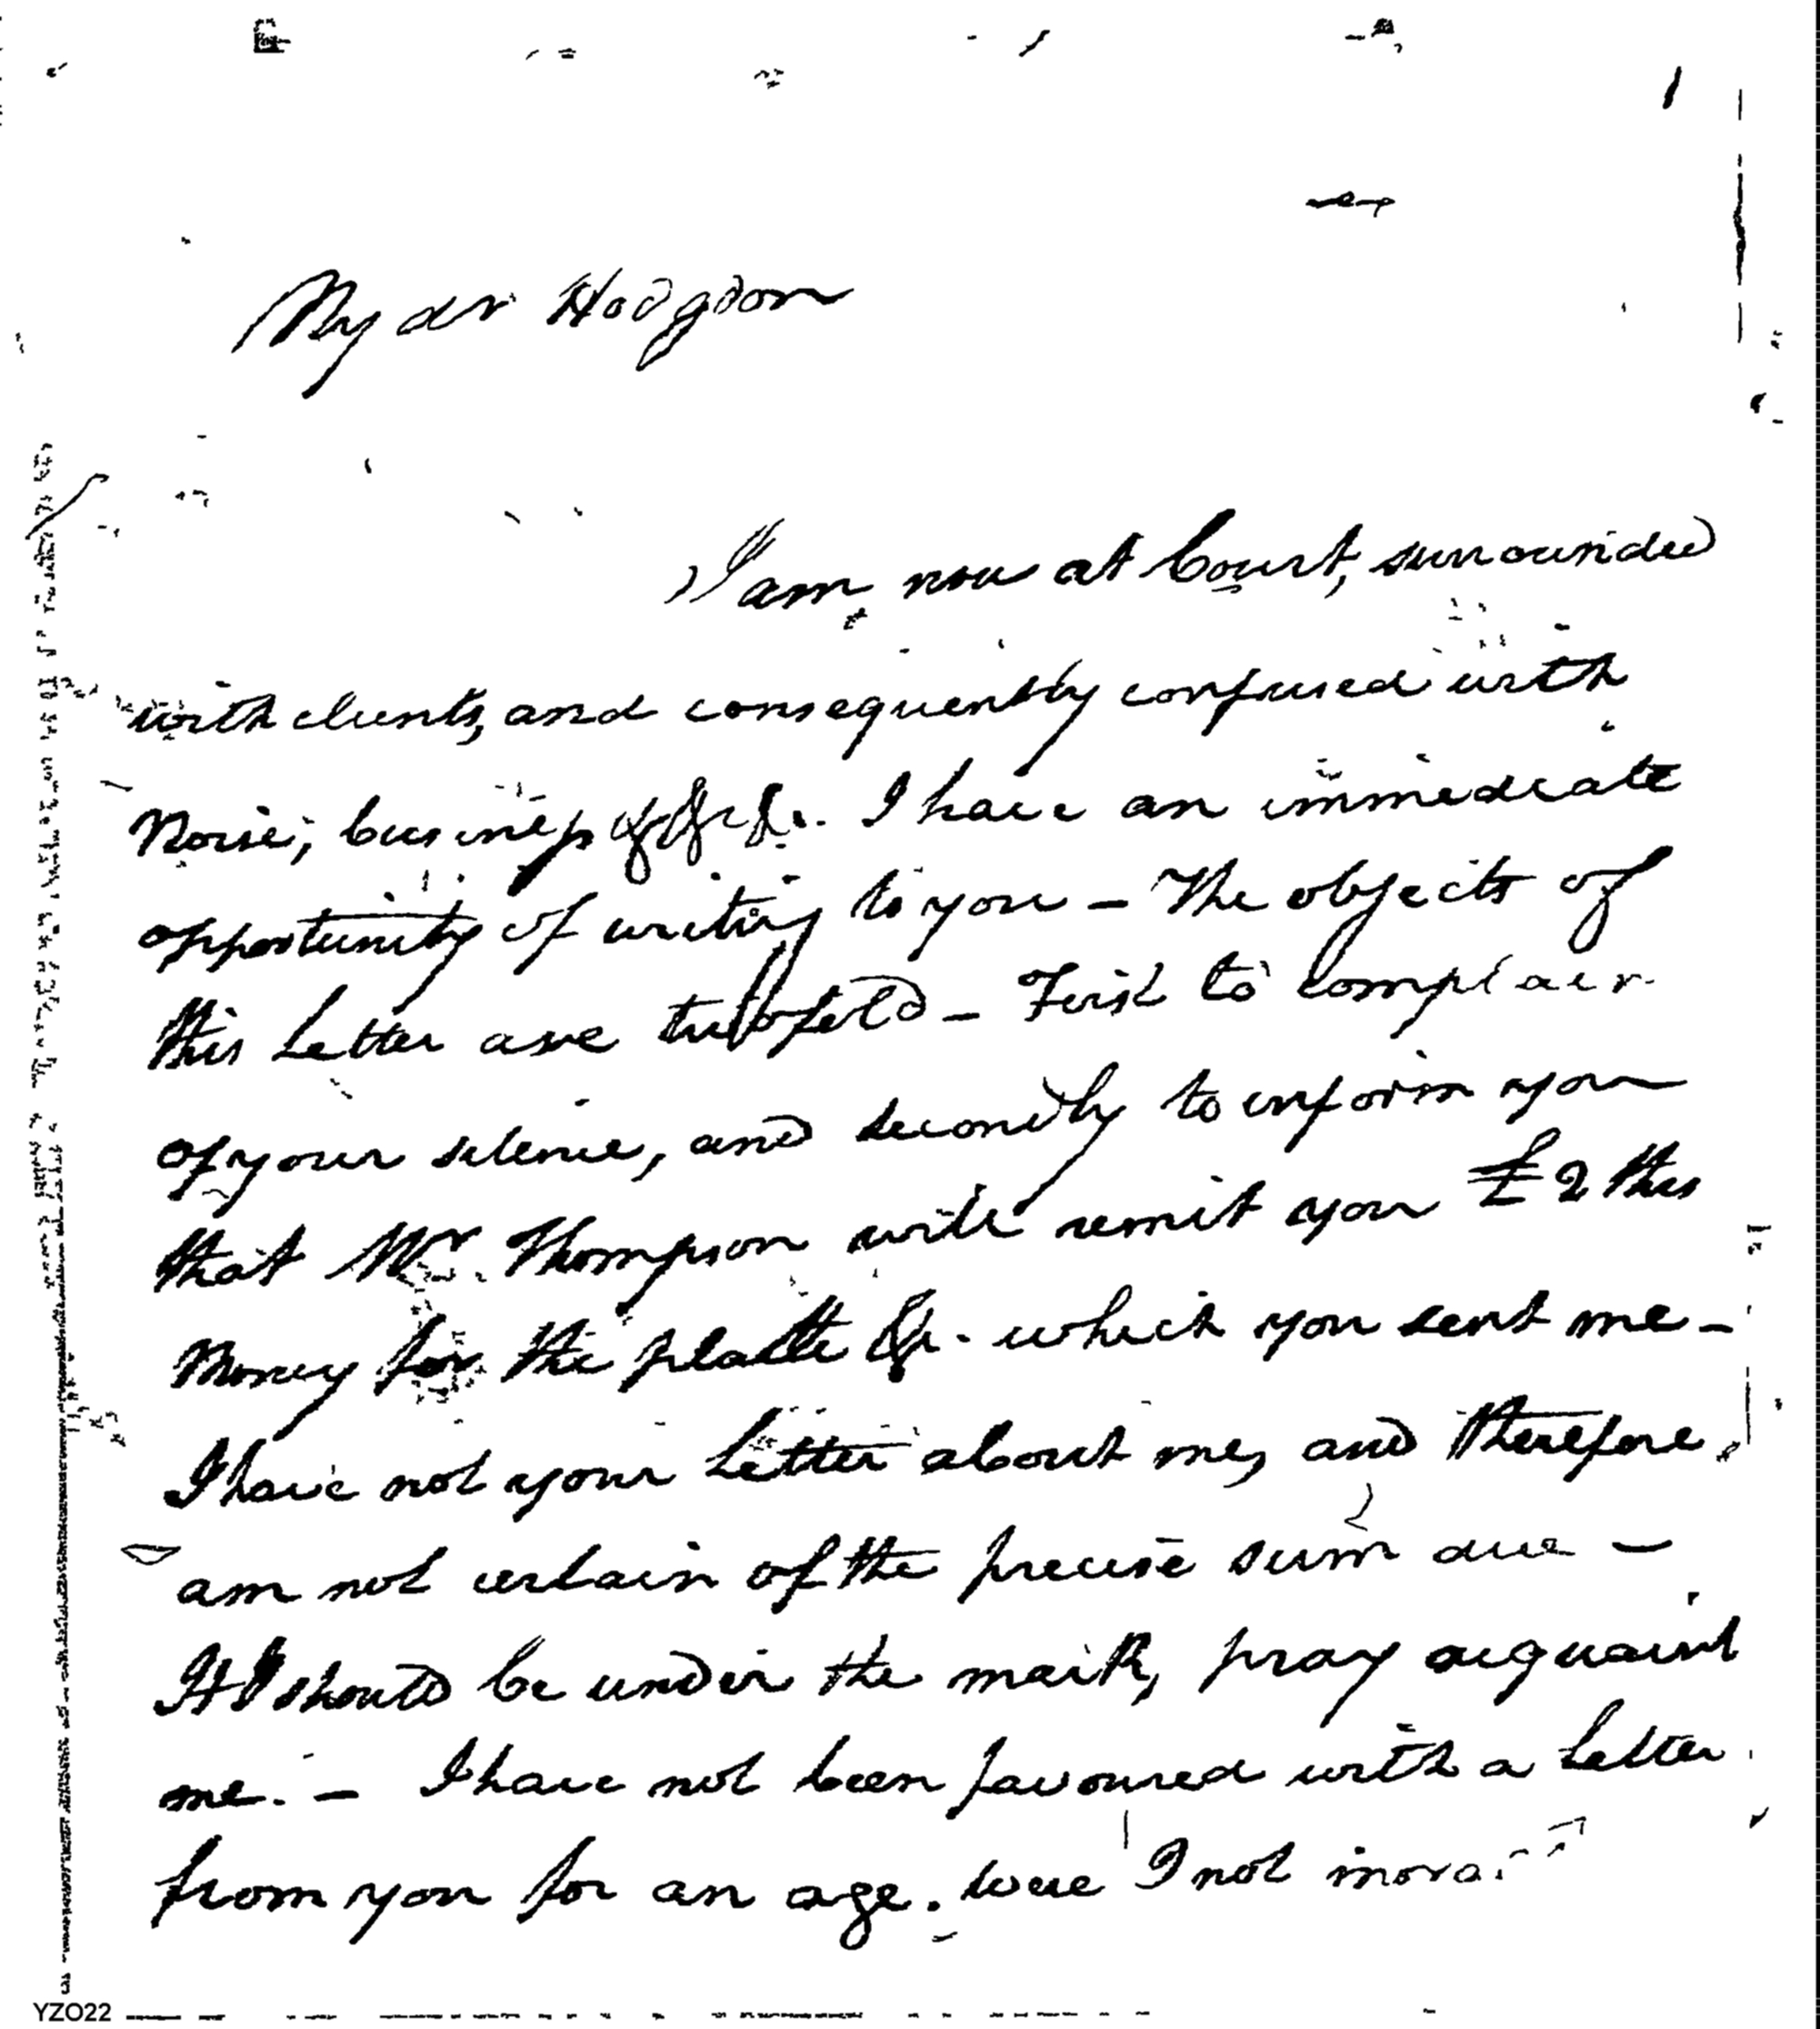 My dr Hodgdon
I am now at Court, surrounded
with clients, and consequently confused with
Noise, business &c &c &c. I have an immediate
opportunity of writing to you – The objects of
this Letter are twofold – First to complain
of your silence, and secondly to inform you
that Mr Thompson will remit you £2 this
Money for the platte &c. which you sent me –
I have not your Letter about me, and therefore
am not certain of the precise sum due –
If I should be under the mark, pray acquaint
me. – I have not been favoured with a Letter
from you for an age. Were I not
YZO22